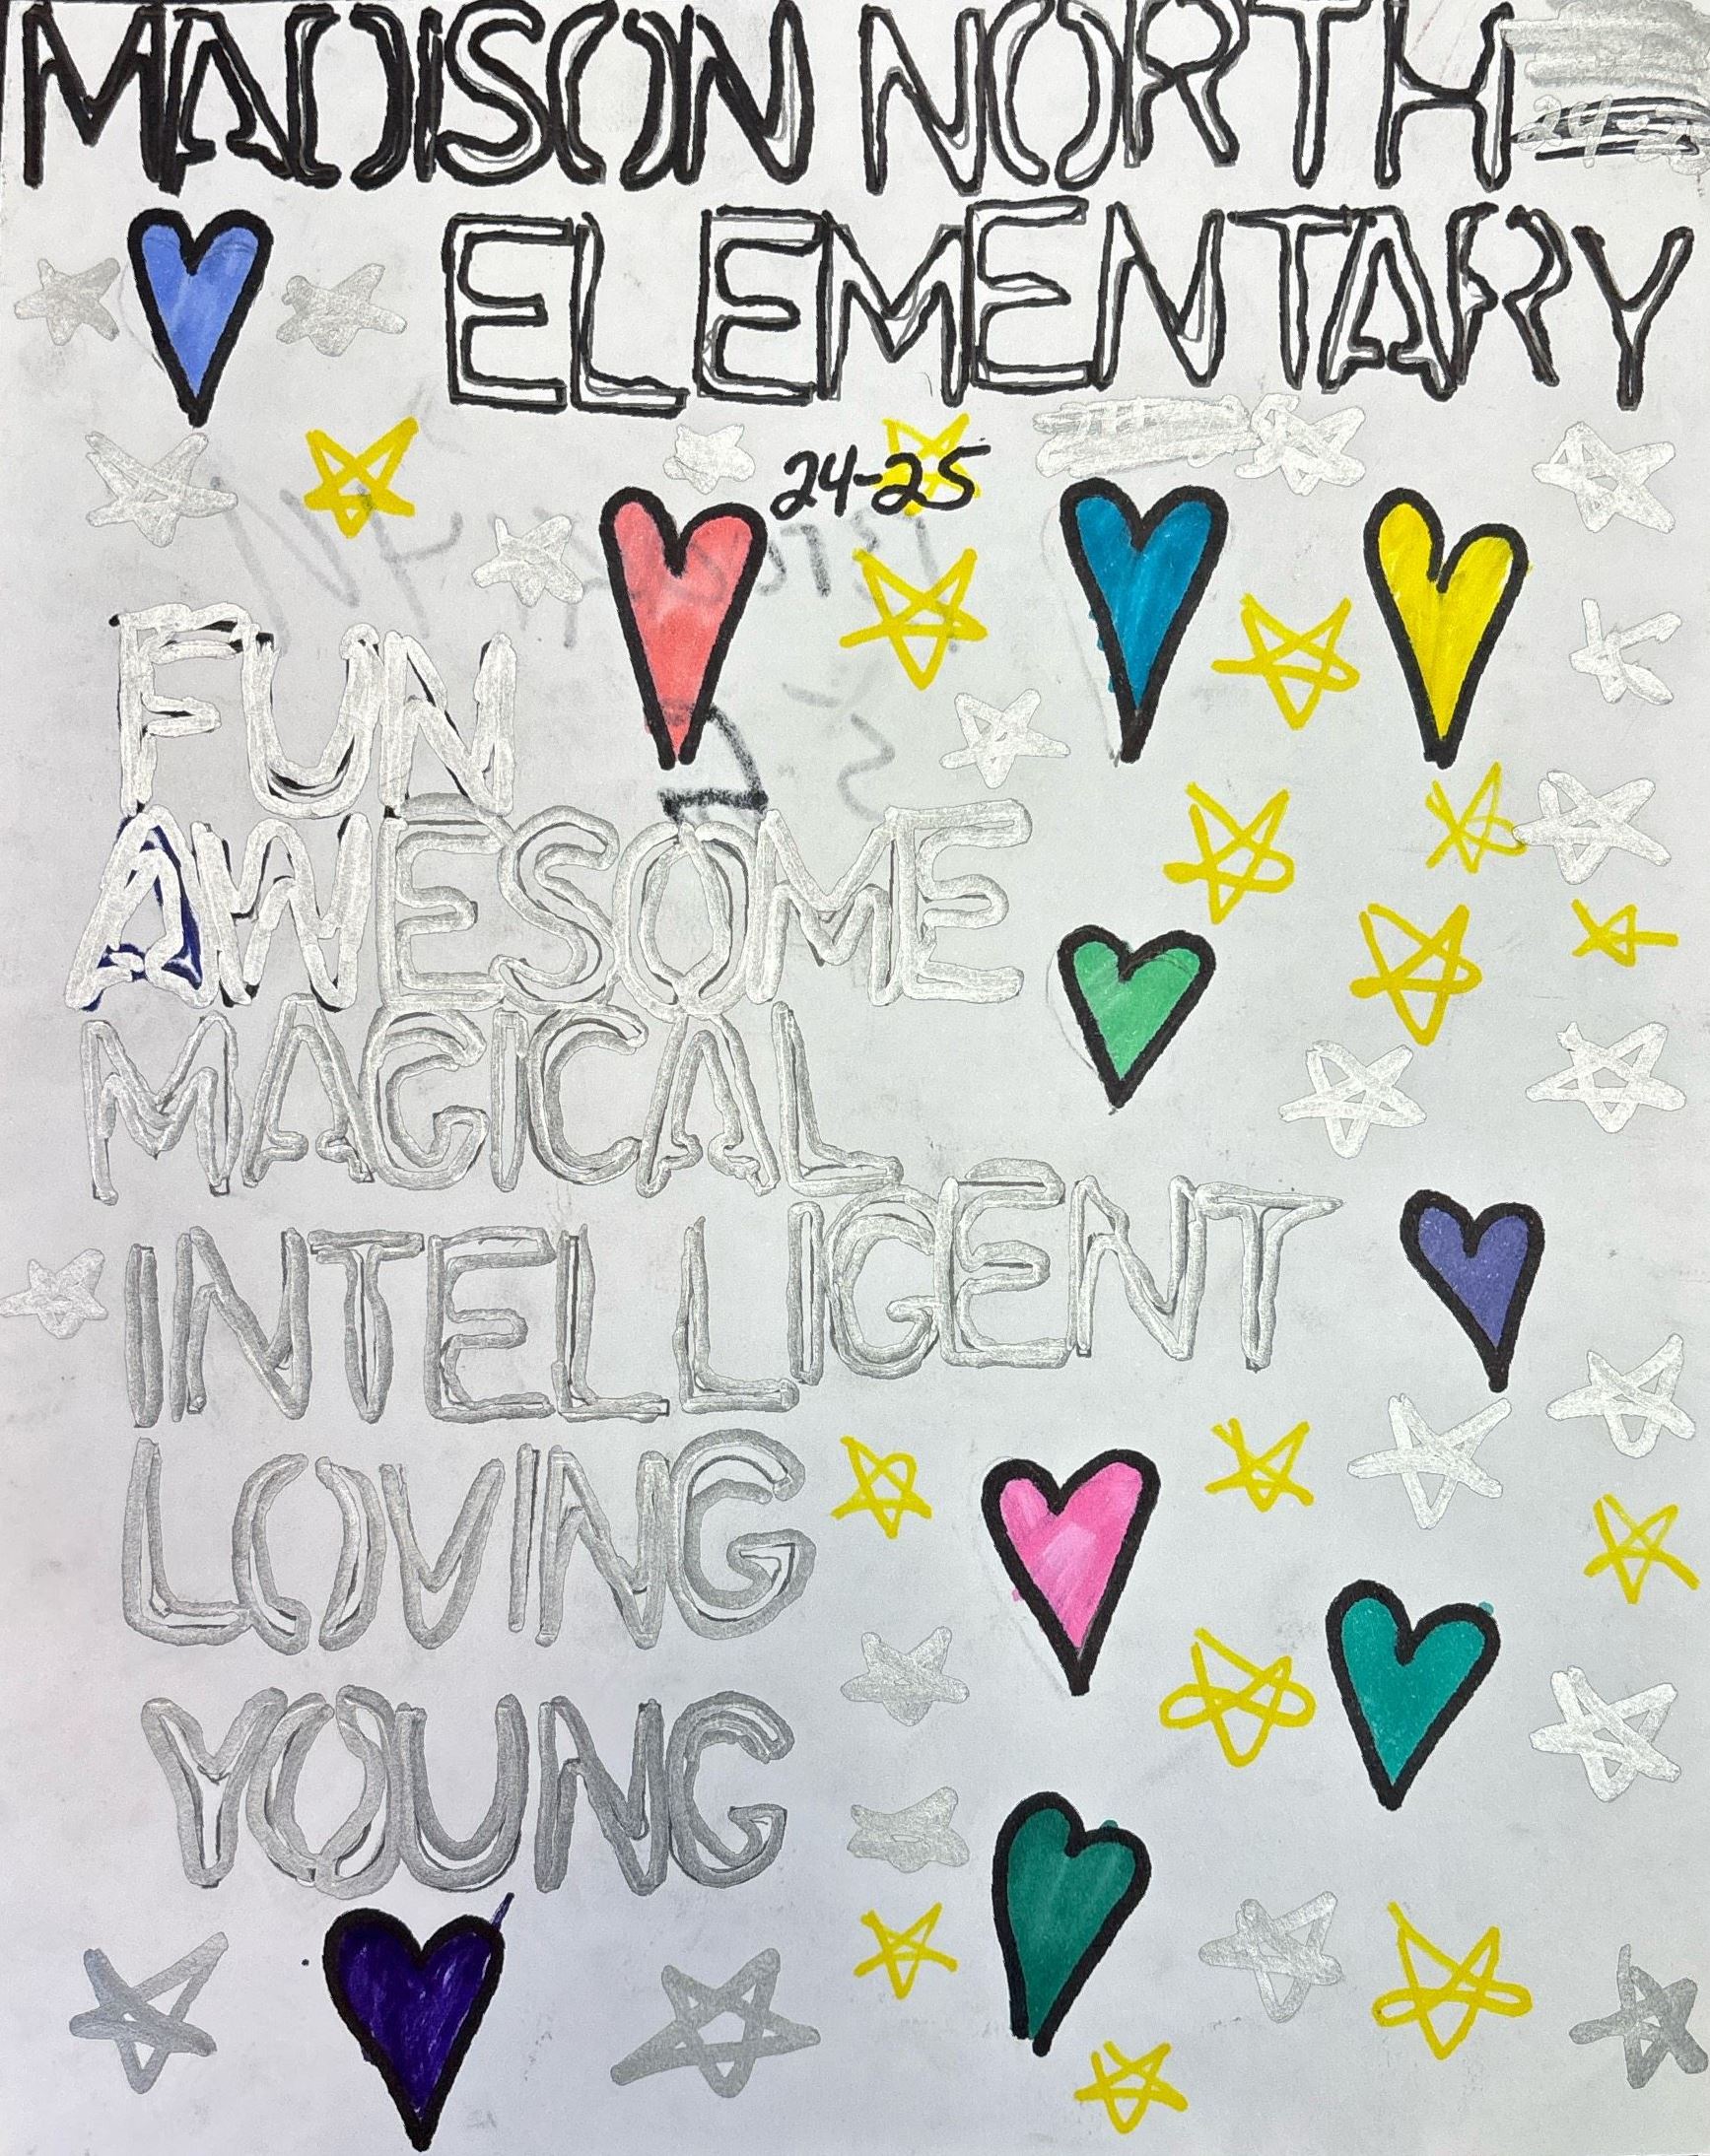 MADISON NORTH
ELEMENTARY
24-25
FUN
AWESOME
MAGICAL
INTELLIGENT
LOVING
YOUNG